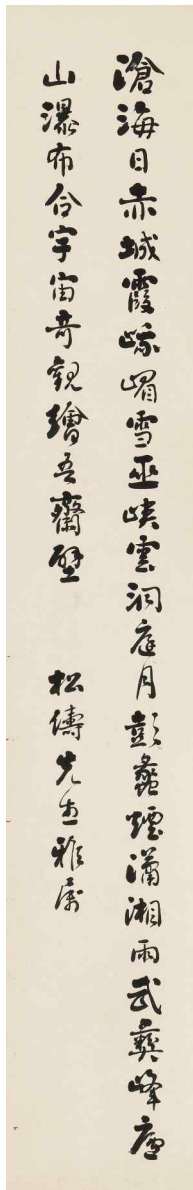 滄海日赤城霞峨嵋雪巫峽雲洞庭月彭蠡煙瀟湘雨武彝峰廬
山瀑布合宇宙奇觀繪吾齋壁 松儔先生雅属